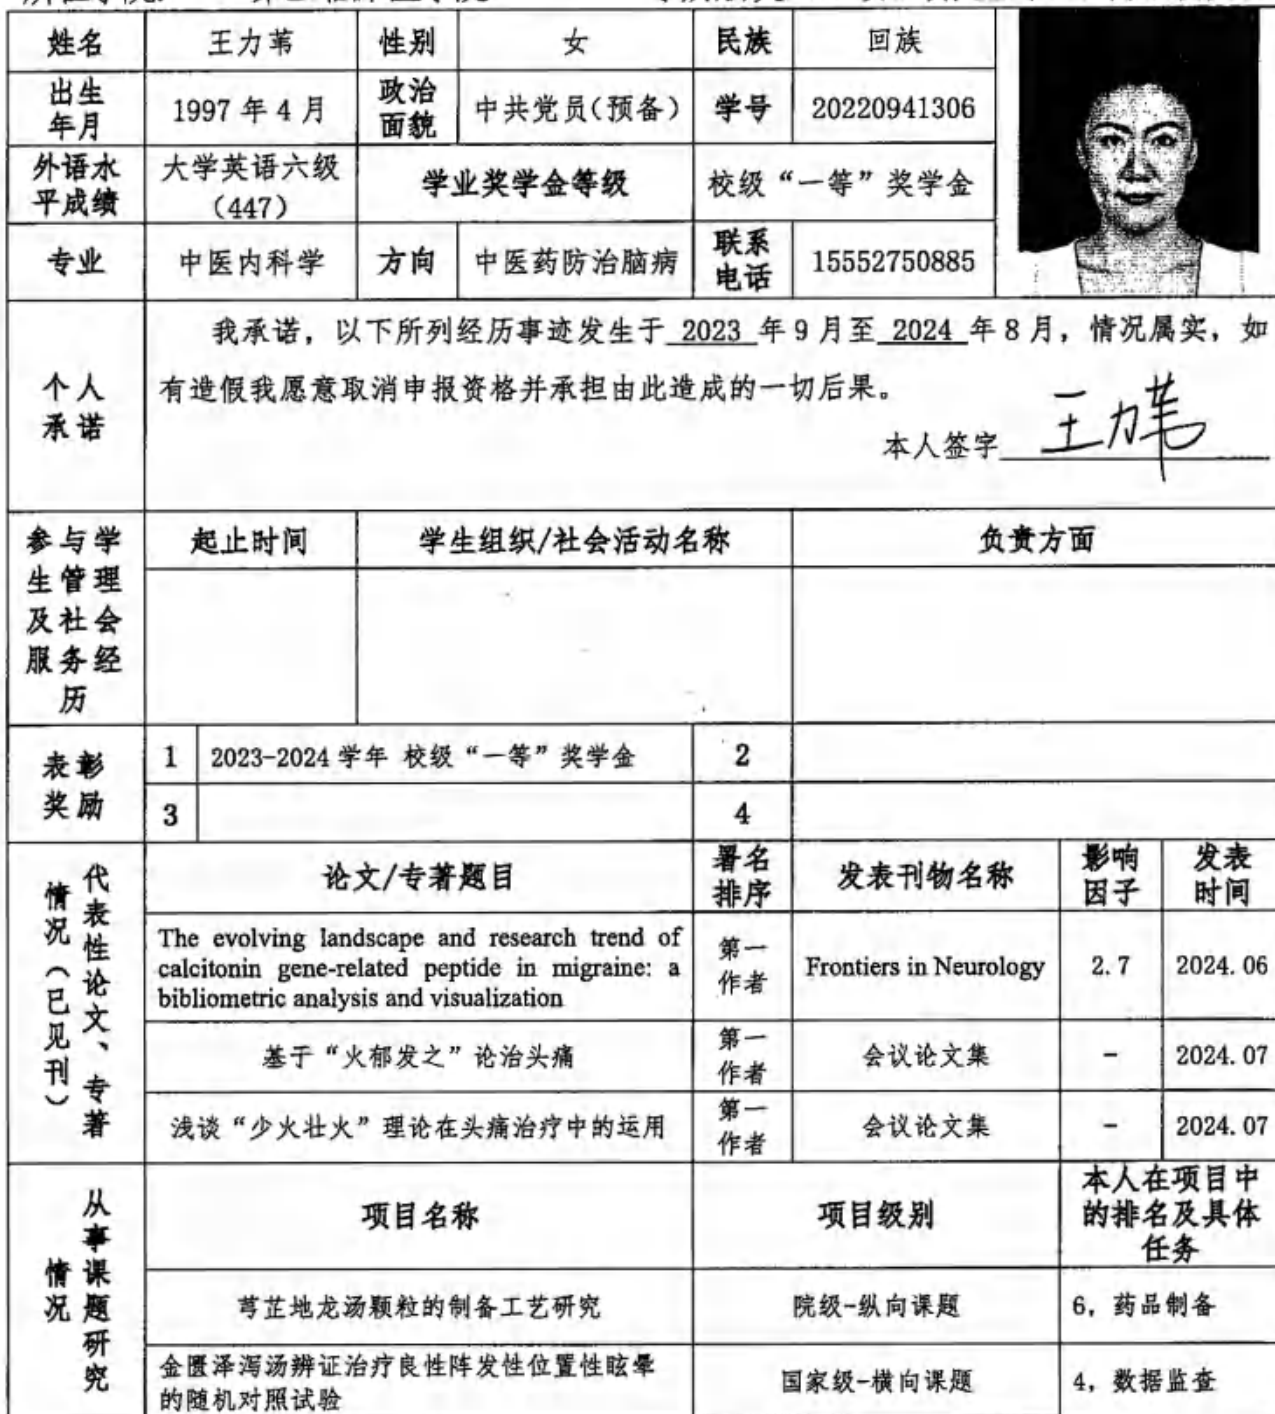 姓名 王力苇 性别 女 民族 回族
出生年月 1997年4月 政治面貌 中共党员(预备) 学号 20220941306
外语水平成绩 大学英语六级(447) 学业奖学金等级 校级“一等”奖学金
专业 中医内科学 方向 中医药防治脑病 联系电话 15552750885
个人承诺
我承诺,以下所列经历事迹发生于 2023 年9月至 2024 年8月,情况属实,如
有造假我愿意取消申报资格并承担由此造成的一切后果。
本人签字 王力苇
参与学生管理及社会服务经历
起止时间 学生组织/社会活动名称 负责方面
表彰奖励
1 2023-2024学年 校级“一等”奖学金 2
3 4
代表性论文、专著情况(已见刊)
论文/专著题目 署名排序 发表刊物名称 影响因子 发表时间
The evolving landscape and research trend of
calcitonin gene-related peptide in migraine: a
bibliometric analysis and visualization
第一作者 Frontiers in Neurology 2.7 2024.06
基于“火郁发之”论治头痛 第一作者 会议论文集 - 2024.07
浅谈“少火壮火”理论在头痛治疗中的运用 第一作者 会议论文集 - 2024.07
从事课题研究情况
项目名称 项目级别 本人在项目中的排名及具体任务
芎芷地龙汤颗粒的制备工艺研究 院级-纵向课题 6,药品制备
金匮泽泻汤辨证治疗良性阵发性位置性眩晕
的随机对照试验
国家级-横向课题 4,数据监查